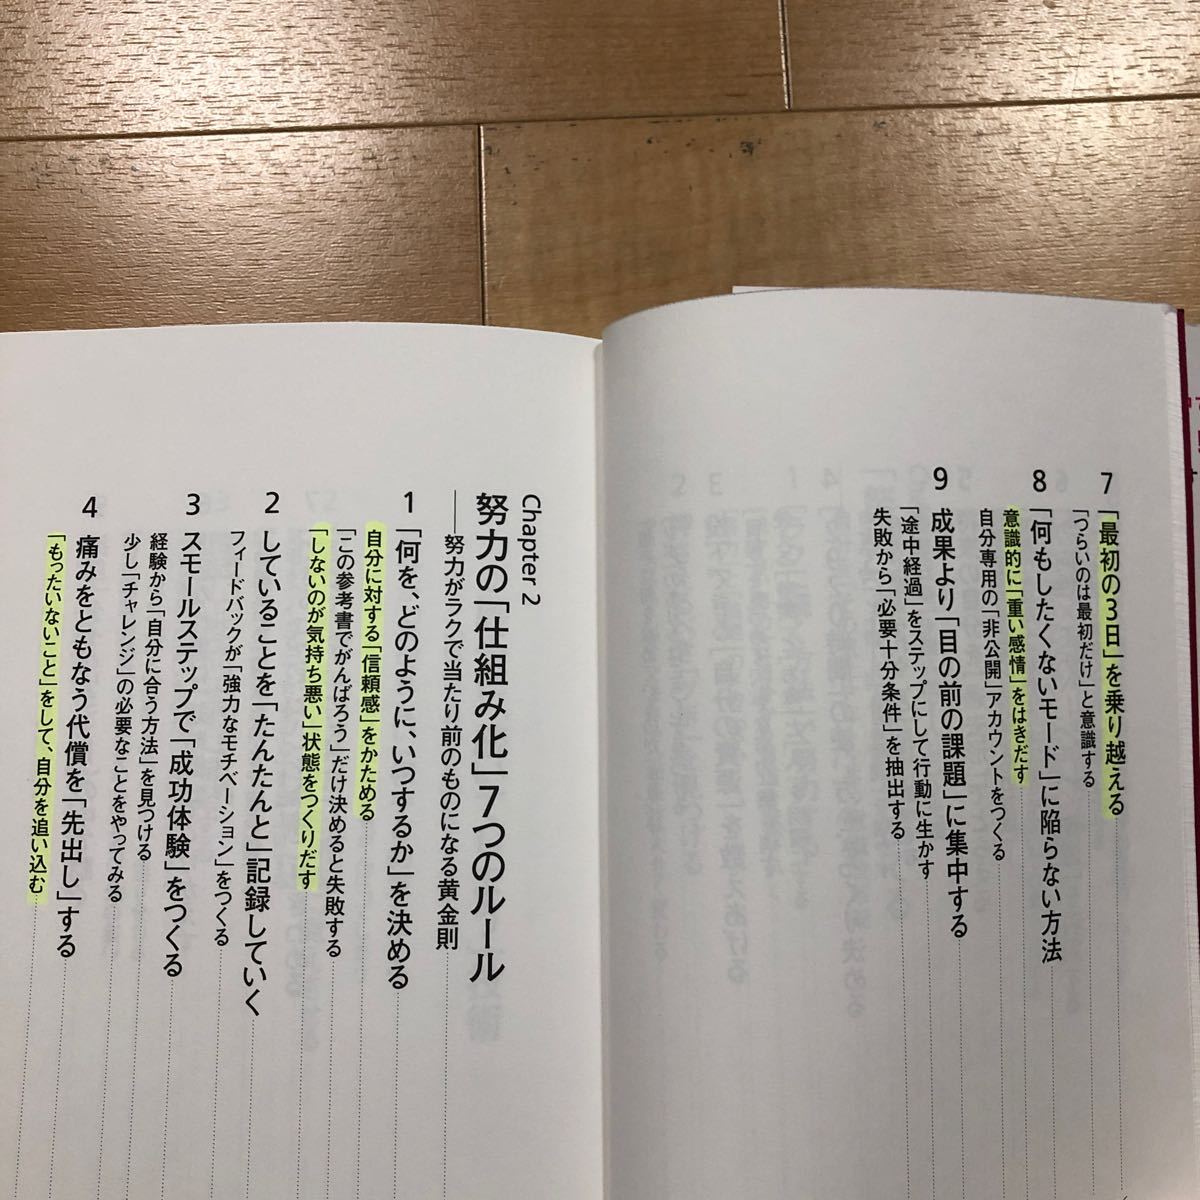 7 「最初の3日」を乗り越える
「つらいのは最初だけ」と意識する
8 「何もしたくないモード」に陥らない方法
意識的に「重い感情」をはきだす
自分専用の「非公開」アカウントをつくる
9 成果より「目の前の課題」に集中する
「途中経過」をステップにして行動に生かす
失敗から「必要十分条件」を抽出する
Chapter 2
努力の「仕組み化」7つのルール
──努力がラクで当たり前のものになる黄金則
1 「何を、どのように、いつするか」を決める
自分に対する「信頼感」をかためる
「この参考書でがんばろう」だけ決めると失敗する
「しないのが気持ち悪い」状態をつくりだす
2 していることを「たんたんと」記録していく
フィードバックが「強力なモチベーション」をつくる
3 スモールステップで「成功体験」をつくる
経験から「自分に合う方法」を見つける
少し「チャレンジ」の必要なことをやってみる
4 痛みをともなう代償を「先出し」する
「もったいないこと」をして、自分を追い込む